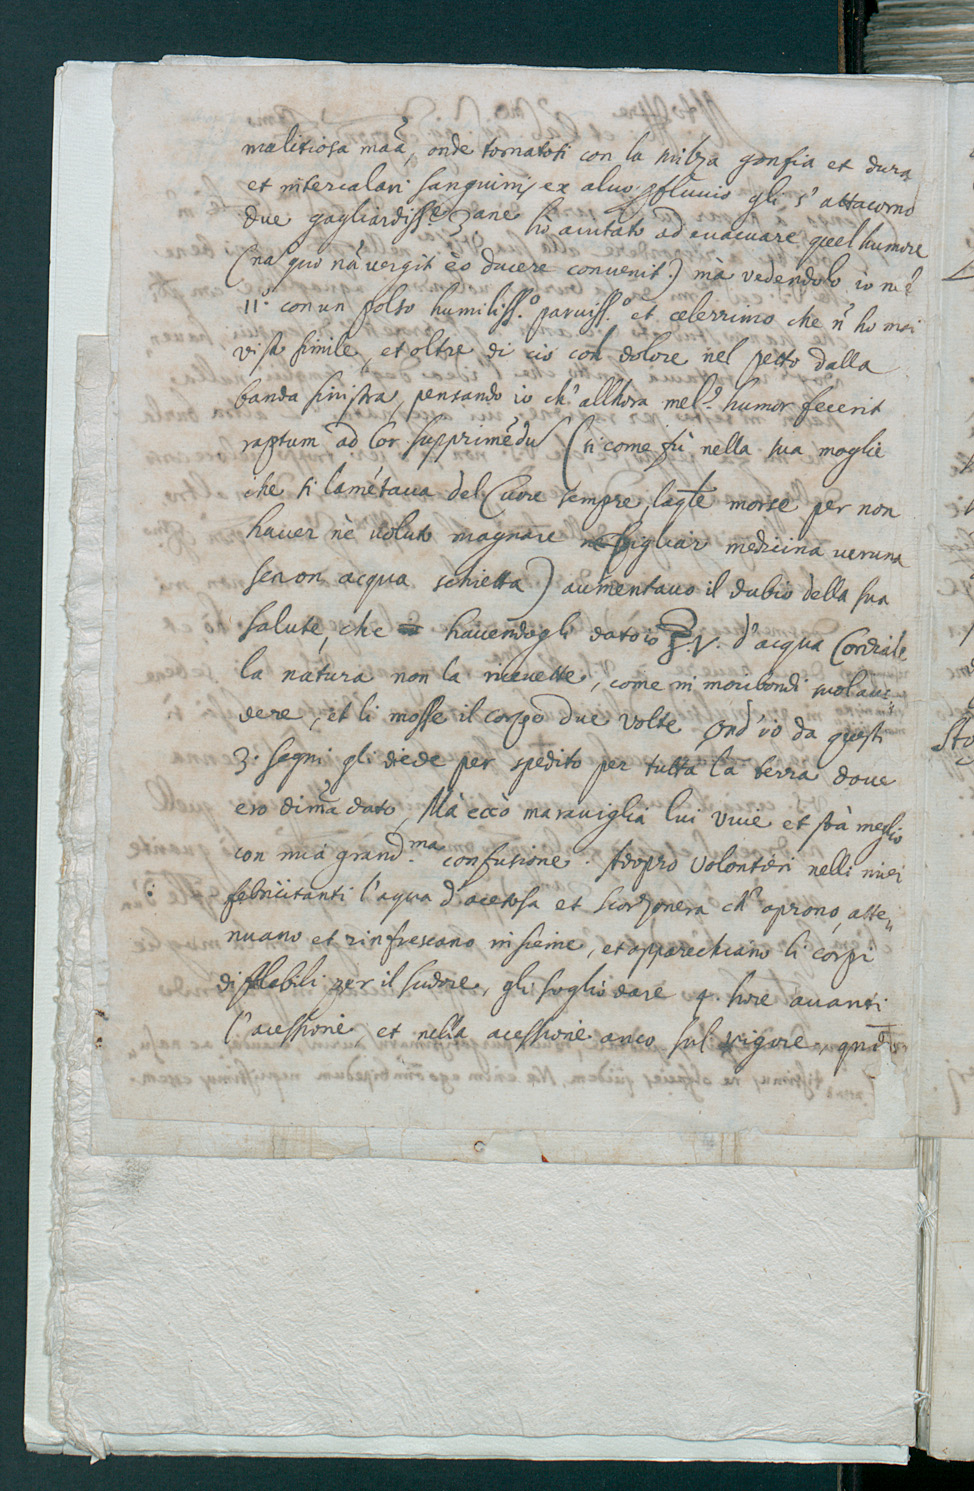 malitiosa maã, onde tornatosi con la milza gonfia et dura
et intercalari sanguinis ex aluo profluuio gli s'attacorno
due gagliardiss.e 3ane hò aiutato ad euacuare quel humore
(nã quò nã vergit eò ducere conuenit) mà vedendolo io nel
11° con un polso humiliss.o paruiss.o et celerrimo che ñ ho mai
visto simile, et oltre di ciò col dolore nel petto dalla
banda sinistra, pensando io ch' allhora mel.o humor fecerit
raptum ad Cor supprimẽdũ (si come fù nella sua moglie
che si lamẽtaua del Cuore sempre, laqle morse per non
hauer nè voluto magnare ne pigliar medicina veruna
senon acqua schietta) aumentauo il dubio della sua
salute, che hauendogli dato io ℥ v. d'acqua Cordiale
la natura non la riceuette, come in moribondi suol acci=
dere, et li mosse il corpo due volte ond'io da questi
3. segni gli diede per spedito per tutta la terra doue
ero dimãdato, Mà ecco marauiglia lui viue et stà meglio
con mia grand.ma confusione. Adopro volontieri nelli miei
febricitanti l'aqua d'acetosa et scorzonera ch' aprono, atte=
nuano et rinfrescano insieme, et apparechiano li corpi
difflabili per il sudore, gli soglio dare 4. hore auanti
l'acessione, et nella acessione anco sul rigore, qñ